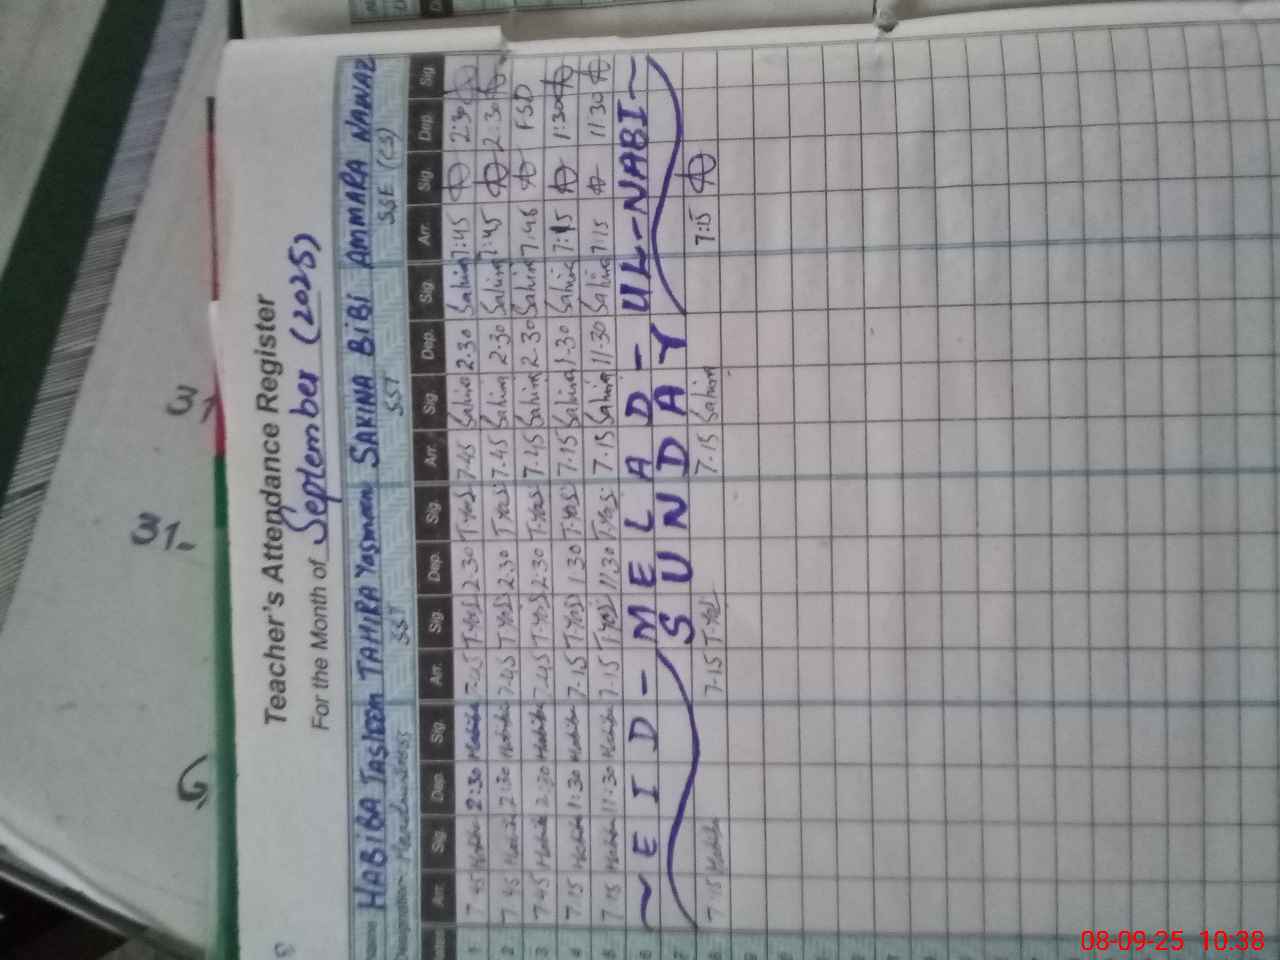 Teacher's Attendance Register
For the Month of September (2025)
HABIBA Tasleem TAHIRA Yasmeen SAKINA BiBi AMMARA NAWAZ
SST SST SSE (CS)
Arr. Sig. Dep. Sig. Arr. Sig. Dep. Sig. Arr. Sig. Dep. Sig. Arr. Sig. Dep. Sig.
1 7.45 Habiba 2:30 Habiba 7.45 T.Yas 2.30 T.Yas 7.45 Sakina 2.30 Sakina 7:45 2:30
2 7.45 Habiba 2:30 Habiba 7.45 T.Yas 2.30 T.Yas 7.45 Sakina 2.30 Sakina 7:45 2:30
3 7.45 Habiba 2:30 Habiba 7.45 T.Yas 2.30 T.Yas 7.45 Sakina 2.30 Sakina 7.45 FSD
4 7.15 Habiba 1:30 Habiba 7.15 T.Yas 1.30 T.Yas 7.15 Sakina 1.30 Sakina 7:15 1:30
5 7.15 Habiba 11:30 Habiba 7.15 T.Yas 11.30 T.Yas 7.15 Sakina 11.30 Sakina 7:15 11:30
6 ~ EID-MELAD-UL-NABI ~
7 SUNDAY
8 7.15 Habiba 7.15 T.Yas 7.15 Sakina 7:15
08-09-25 10:38